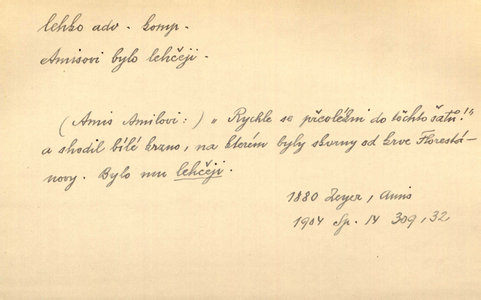 lehko adv. komp.
Amisovi bylo lehčeji.
(Amis Amilovi:) „Rychle se převlékni do těchto šatů!“
a shodil bílé krzno, na kterém byly skvrny od krve Florestá-
novy. Bylo mu lehčeji.
1880 Zeyer, Amis
1904 Sp. 14 309, 32